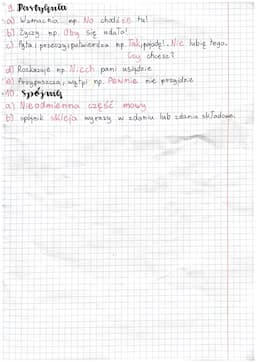 9. Partykuła
a) Wzmacnia np. No chodźże tu!
b) Życzy np. Oby się udało!
c) Pyta i przeczy i potwierdza np. Tak, pojadę! Nie lubię tego.
Czy chcesz?
d) Rozkazuje np. Niech pani usiądzie
e) Przypuszcza, wątpi np. Pewnie nie przyjdzie
10. Spójnik
a) Nieodmienna część mowy
b) spójnik skleja wyrazy w zdaniu lub zdania składowe.